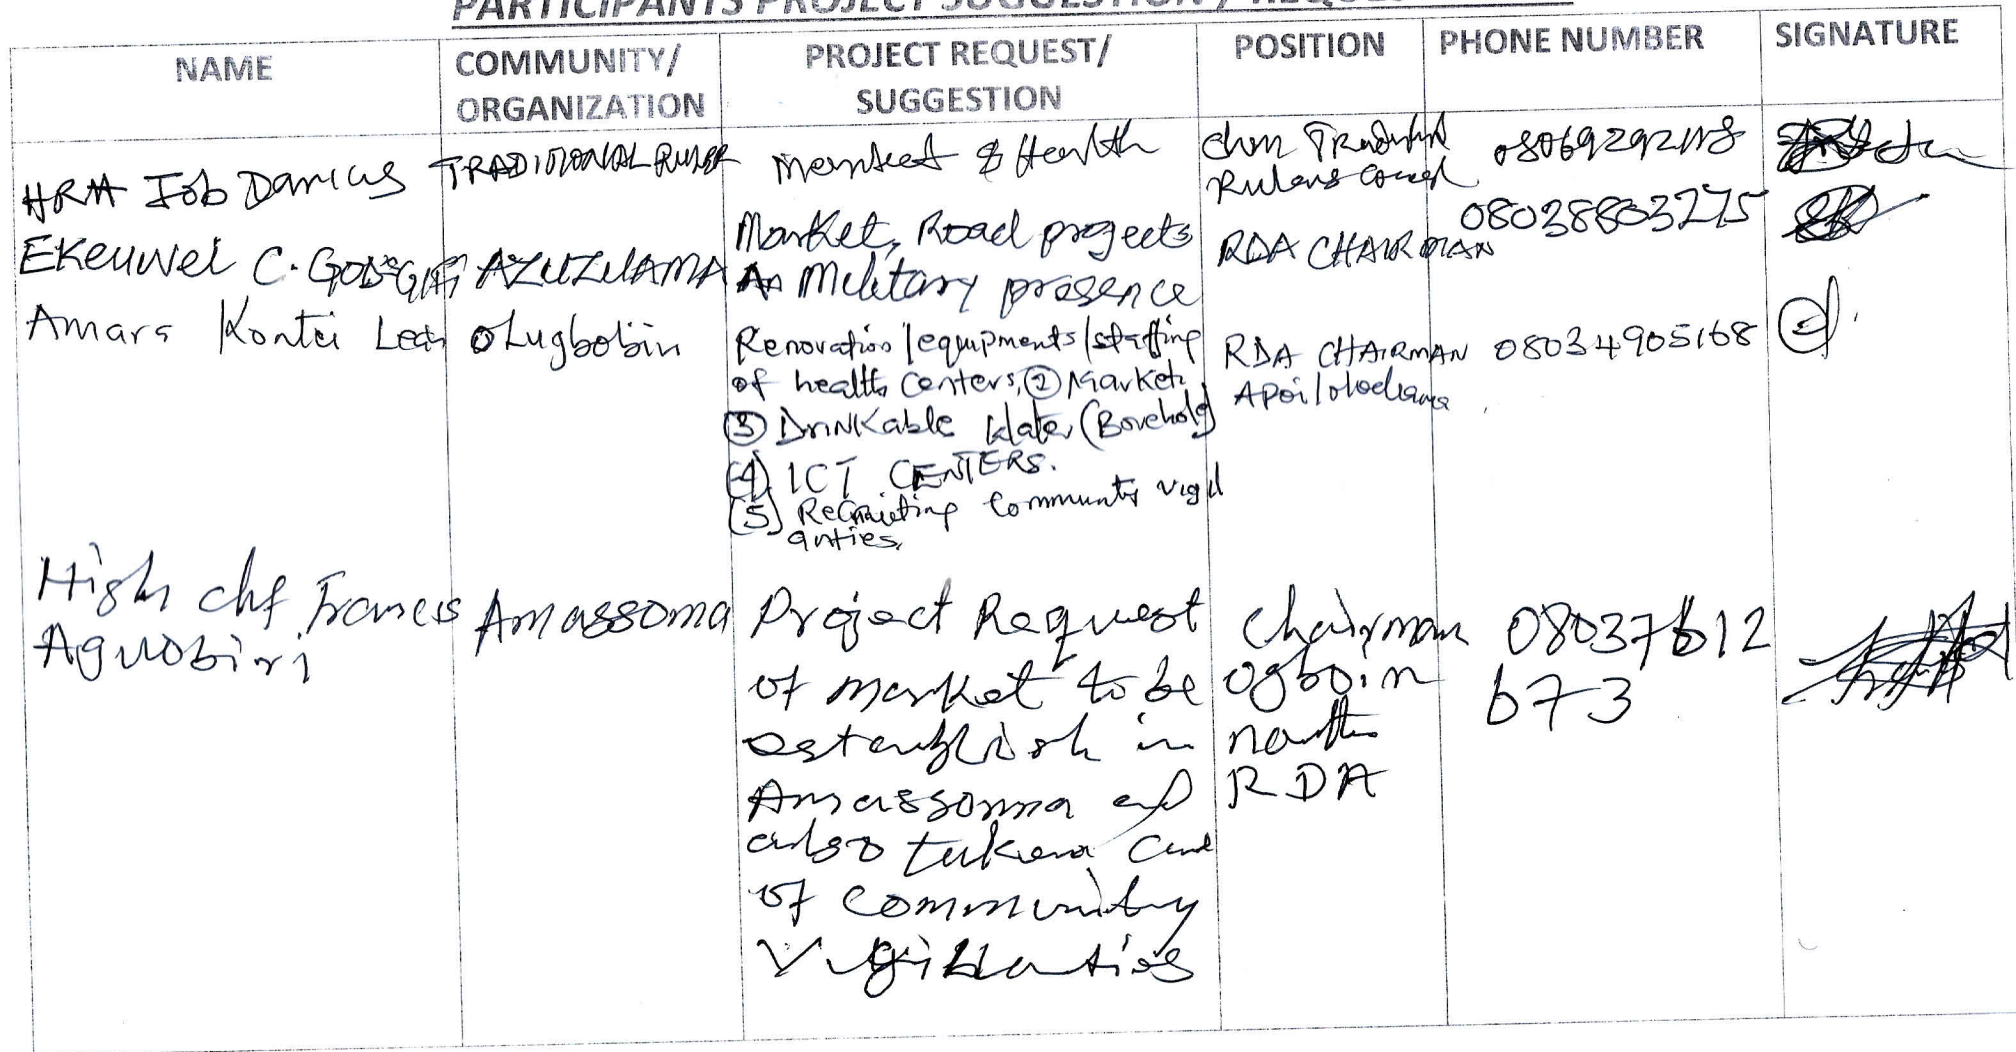 PARTICIPANTS PROJECT SUGGESTION / REQUEST
NAME
COMMUNITY/
ORGANIZATION
PROJECT REQUEST/
SUGGESTION
POSITION
PHONE NUMBER
SIGNATURE
HRM Job Darius
TRADITIONAL RULER
Market & Health
Rulers
Ekeuwei C. God'sGift
AZUZUAMA
Market, Road projects
Military presence
RDA CHAIRMAN
08038803275
Amara Kontei Leah
Olugbobiri
Renovation/equipments/staffing
of health Centers, ② Market
③ Drinkable Water (Borehole)
(4) ICT CENTERS.
(5) Recruiting Community vigil
anties.
RDA CHAIRMAN
Apoi/olodiama
08034905168
High chf Francis
Aguobiri
Amassoma
Project Request
of market to be
establish in
Amassoma and
also tukena Care
of Community
Vigillanties
Chairman
ogboin
north
RDA
08037612
673